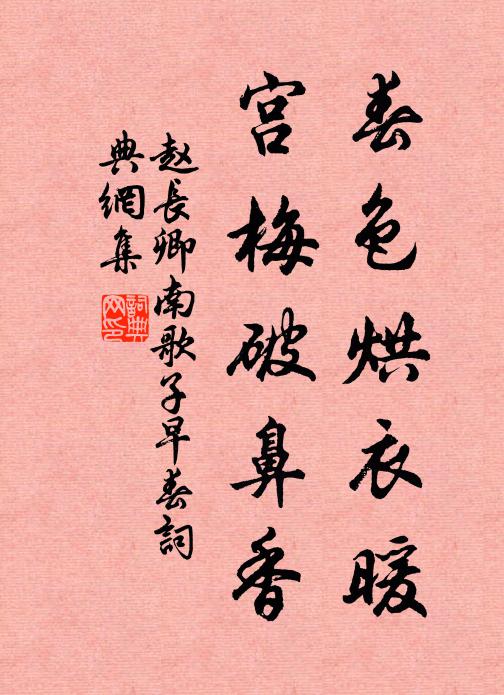 春色烘衣暖
宫梅破鼻香
赵長卿南歌子早春詞
典網集
詞典网印